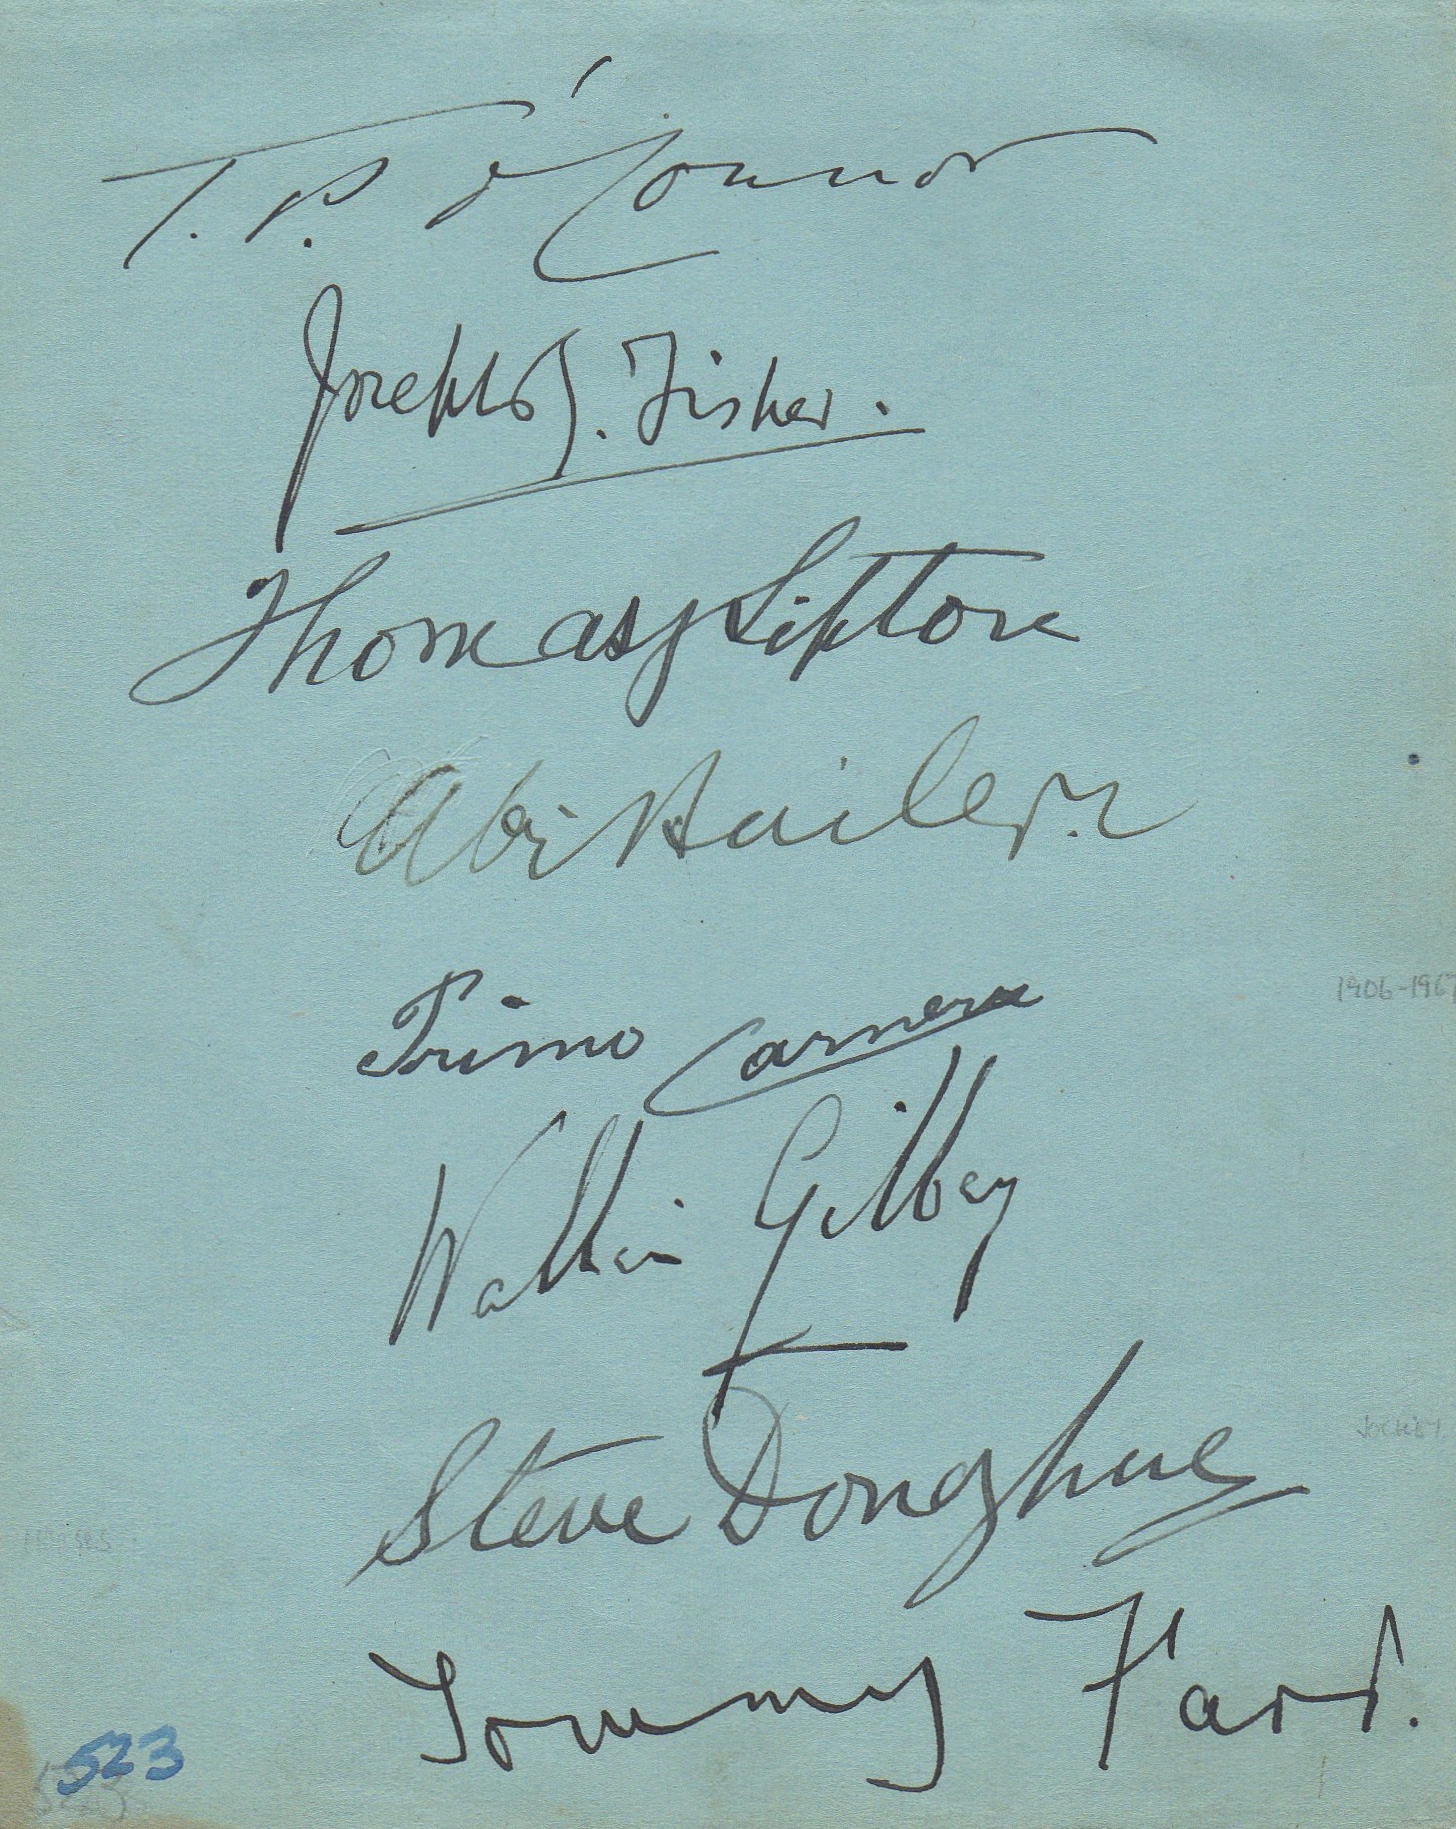 T. P. O'Connor
Joseph J. Fisher.
Thomas J Lipton
Abe Bailey
1906-1967
Primo Carnera
Walter Gilbey
JOCKEY.
Steve Donoghue
Tommy Farr.
523